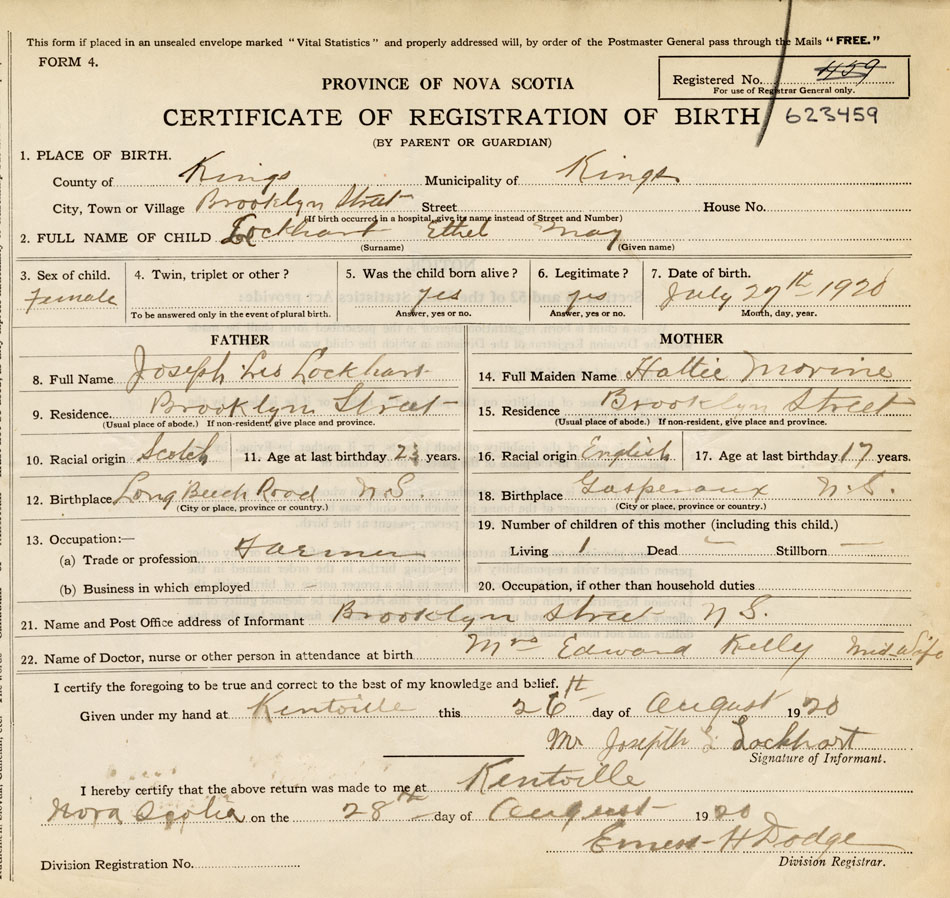 This form if placed in an unsealed envelope marked "Vital Statistics" and properly addressed will, by order of the Postmaster General pass through the Mails "FREE."
FORM 4.
Registered No. 459
For use of Registrar General only.
PROVINCE OF NOVA SCOTIA
CERTIFICATE OF REGISTRATION OF BIRTH 623459
(BY PARENT OR GUARDIAN)
1. PLACE OF BIRTH.
County of Kings Municipality of Kings
City, Town or Village Brooklyn Street Street House No.
(If birth occurred in a hospital, give its name instead of Street and Number)
2. FULL NAME OF CHILD Lockhart Ethel May
(Surname) (Given name)
3. Sex of child. 4. Twin, triplet or other? 5. Was the child born alive? 6. Legitimate? 7. Date of birth.
Female yes yes July 27th 1920
To be answered only in the event of plural birth. Answer, yes or no. Answer, yes or no. Month, day, year.
FATHER
8. Full Name Joseph Leo Lockhart
9. Residence Brooklyn Street
(Usual place of abode.) If non-resident, give place and province.
10. Racial origin Scotch 11. Age at last birthday 23 years.
12. Birthplace Long Beech Road N.S.
(City or place, province or country.)
13. Occupation:—
(a) Trade or profession Farmer
(b) Business in which employed
MOTHER
14. Full Maiden Name Hattie Morine
15. Residence Brooklyn Street
(Usual place of abode.) If non-resident, give place and province.
16. Racial origin English 17. Age at last birthday 17 years.
18. Birthplace Gaspereaux N.S.
(City or place, province or country.)
19. Number of children of this mother (including this child.)
Living 1 Dead — Stillborn —
20. Occupation, if other than household duties
21. Name and Post Office address of Informant Brooklyn Street N.S.
22. Name of Doctor, nurse or other person in attendance at birth Mrs Edward Kelly Mid-Wife
I certify the foregoing to be true and correct to the best of my knowledge and belief.
Given under my hand at Kentville this 26th day of August 1920
Mr Joseph L Lockhart
Signature of Informant.
I hereby certify that the above return was made to me at Kentville
Nova Scotia on the 28th day of August 1920
Ernest H Dodge
Division Registration No. Division Registrar.